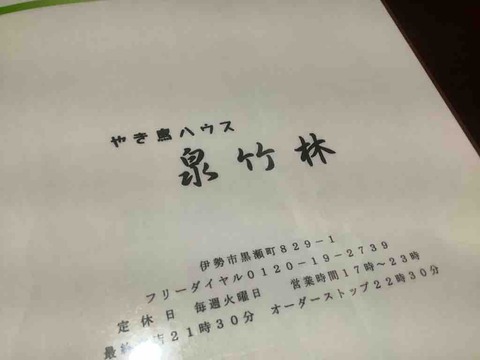 やき鳥ハウス
泉竹林
伊勢市黒瀬町829-1
フリーダイヤル0120-19-2739
定休日 毎週火曜日 営業時間17時~23時
最終 店21時30分 オーダーストップ22時30分